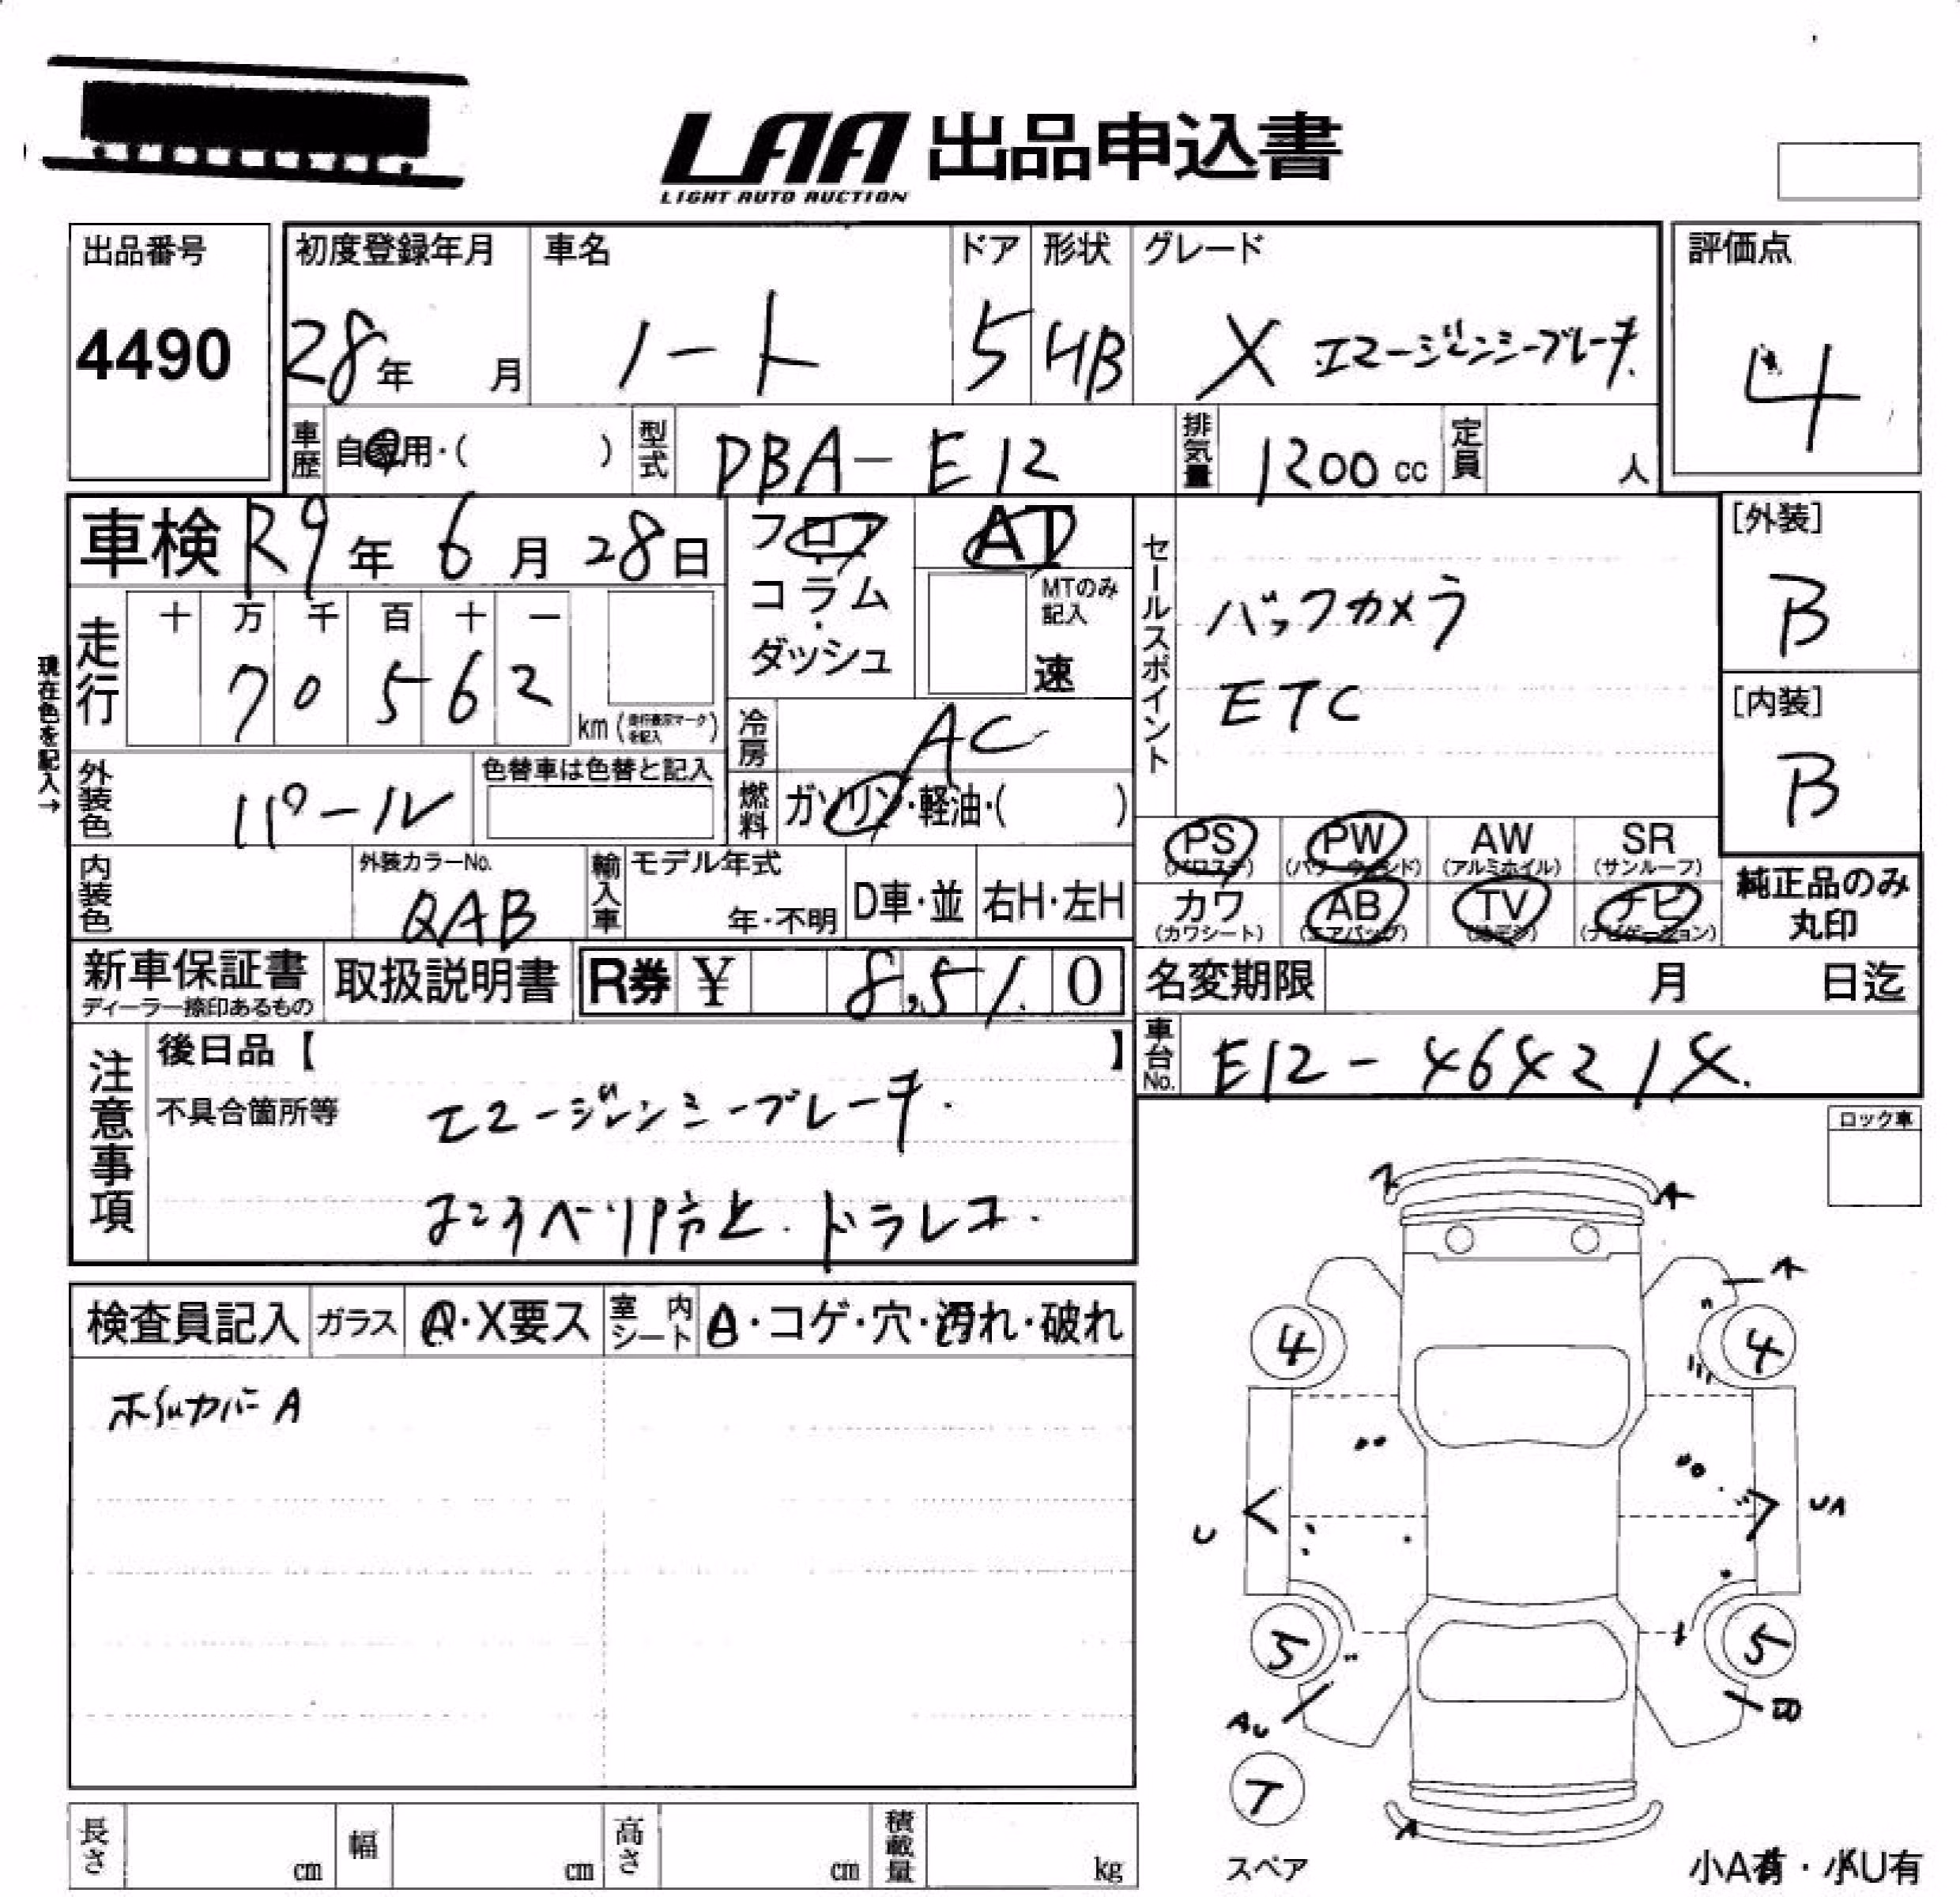 LAA 出品申込書
LIGHT AUTO AUCTION
出品番号
4490
初度登録年月 車名 ドア 形状 グレード
28年 月 ノート 5 HB X エマージェンシーブレーキ
評価点
4
車歴 自家用・( ) 型式 DBA-E12 排気量 1200cc 定員 人
車検 R9年 6月 28日
フロア・コラム・ダッシュ
AT
MTのみ記入
速
セールスポイント
バックカメラ
ETC
[外装]
B
[内装]
B
現在色を記入→
走行 十 万 千 百 十 一
7 0 5 6 2
km (走行表示マークを記入)
冷房 AC
燃料 ガソリン・軽油・( )
外装色 パール
色替車は色替と記入
内装色
外装カラーNo.
QAB
輸入車 モデル年式
年・不明 D車・並 右H・左H
PS (パワステ) PW (パワーウィンド) AW (アルミホイル) SR (サンルーフ)
カワ (カワシート) AB (エアバッグ) TV ナビ (ナビゲーション)
純正品のみ
丸印
新車保証書
ディーラー捺印あるもの
取扱説明書
R券 ¥ 8,510
名変期限 月 日迄
車台No. E12-464214
注意事項
後日品【 】
不具合箇所等
エマージェンシーブレーキ.
よこすべり防止.ドラレコ.
ロック車
検査員記入 ガラス A・X要ス 室内シート A・コゲ・穴・汚れ・破れ
ホイルカバーA
A
A
4
4
U
UA
5
5
AU
T
A
スペア
小A有・小U有
長さ cm 幅 cm 高さ cm 積載量 kg